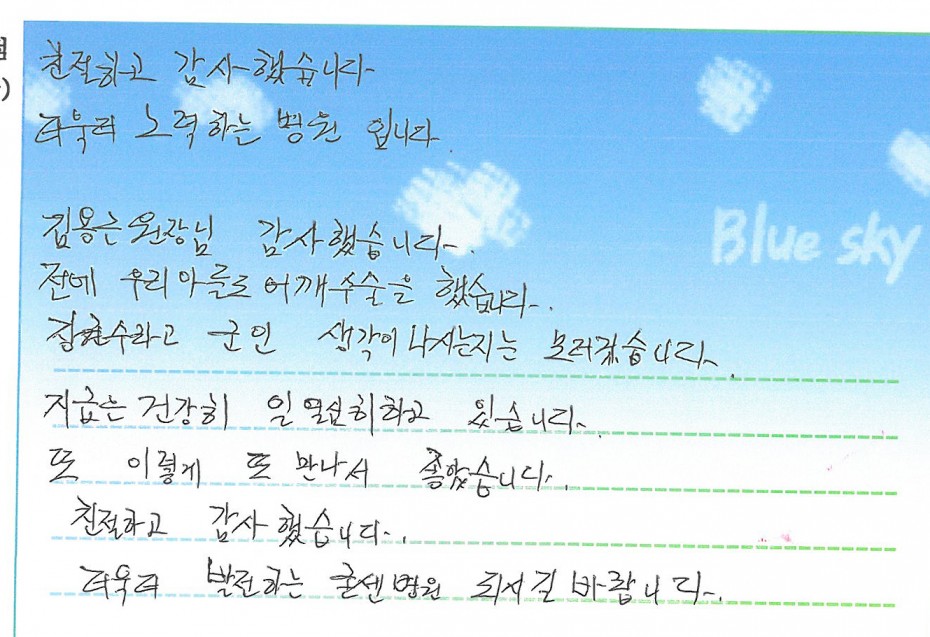 친절하고 감사했습니다
더욱더 노력하는 병원 입니다.
Blue sky
김용은 원장님 감사했습니다.
전에 우리아들도 어깨수술을 했습니다.
수라고 군인 생각이나시는지는 모러겠습니다.
지금은 건강히 일 열심히하고 있습니다.
또 이렇게 또 만나서 좋았습니다.
친절하고 감사했습니다.
더욱더 발전하는 굳센병원 되시길 바랍니다.